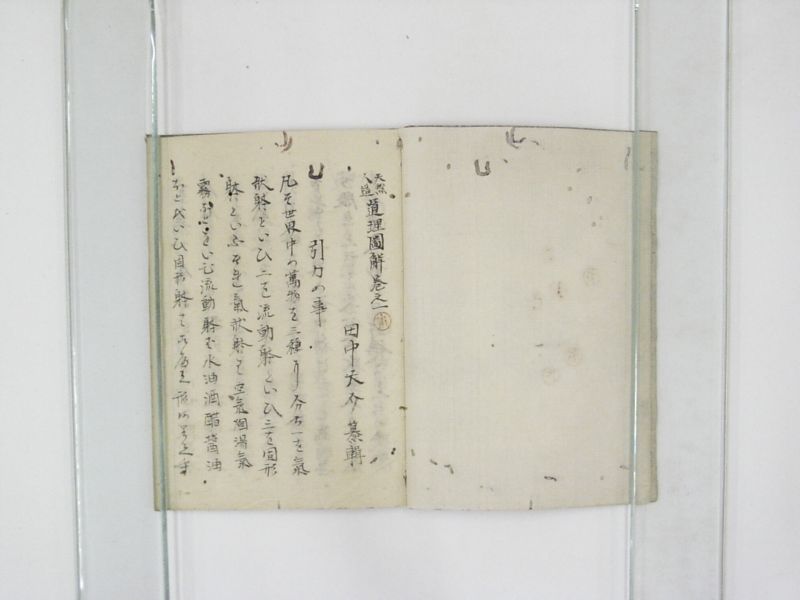 天然人造道理圖解卷之一
田中天介纂輯
引力の事
凡そ世界中の萬物を三種に分ち一を氣
状躰といひ二を流動躰といひ三を固形
躰といふ 氣状躰は空氣 湯氣
霧 といひ流動躰は水油酒醋醤油
といひ固形躰は